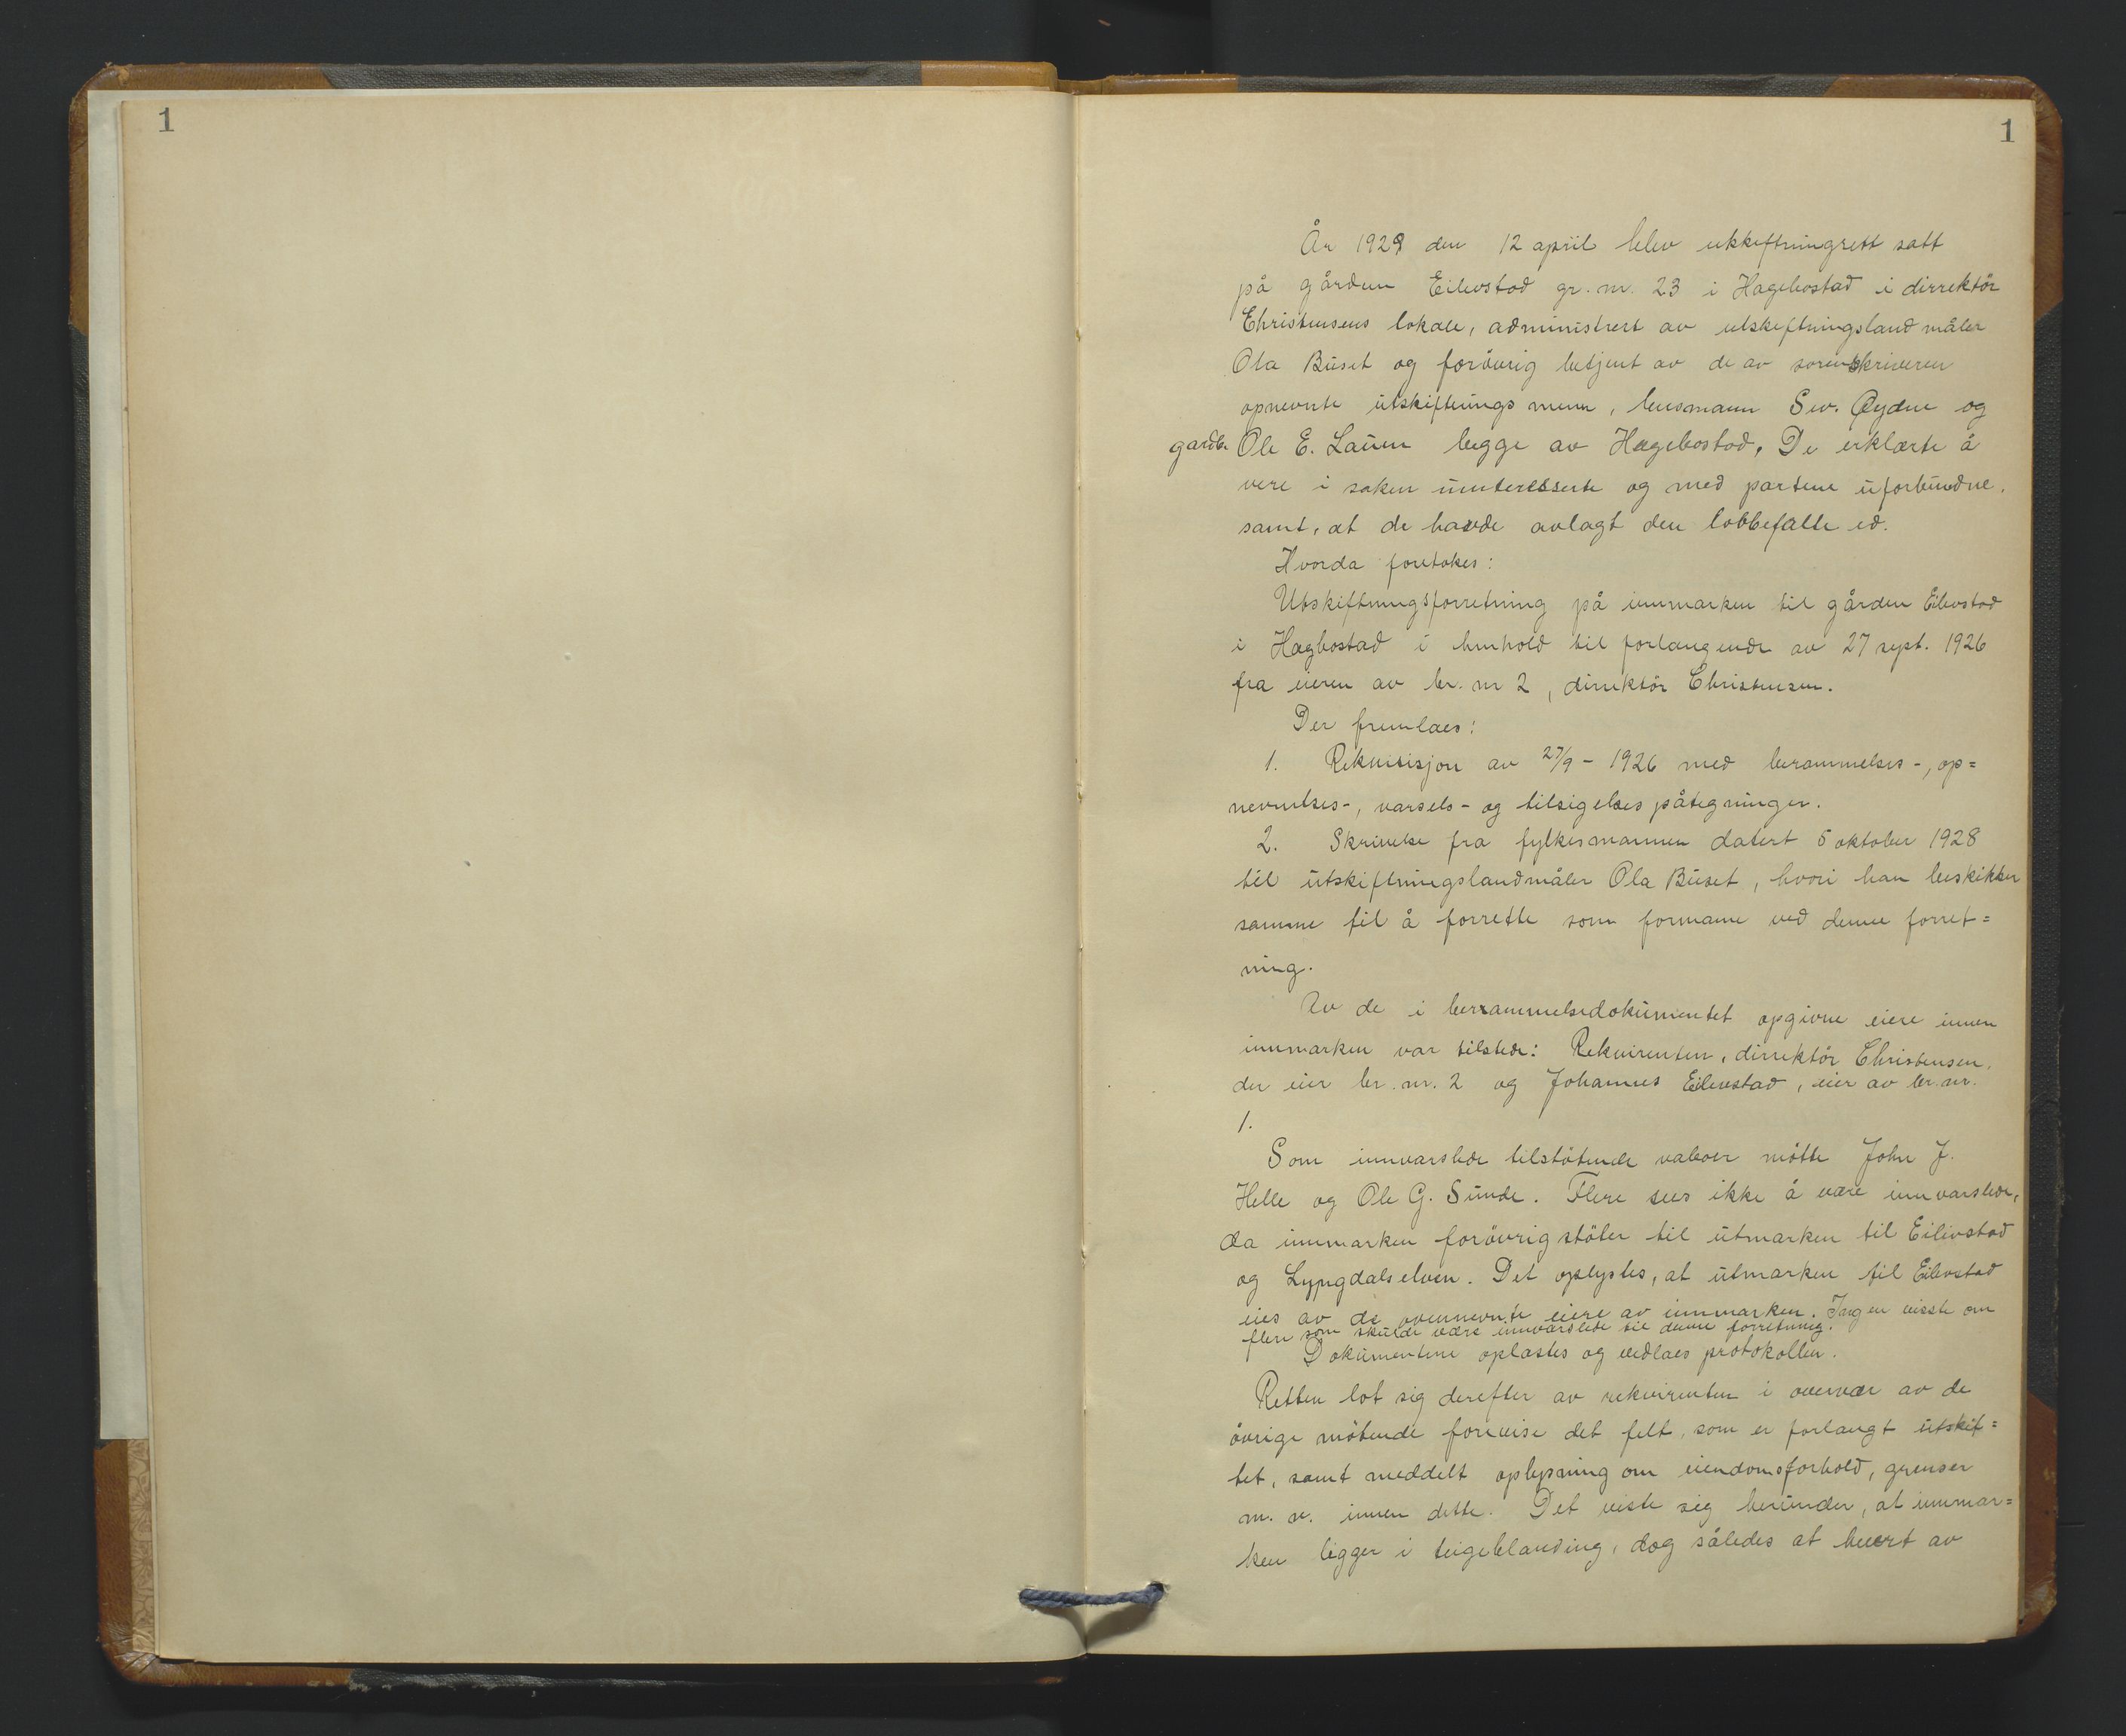 1
1
År 1929 den 12 april blev utskiftningrett satt
på gården Eilevstad gr. nr. 23 i Hagebostad i dirrektör
Christensens lokale, administrert av utskiftningsland måler
Ola Buset og forövrig betjent av de av sorenskriveren
opnevnte utskiftnings menn, lensmann Sev. Øydne og
gardb. Ole E. Lauen begge av Hagebostad. De erklærte å
vere i saken uinteresserte og med partene uforbundne,
samt, at de havde avlagt den lobbefalte ed.
Hvorda foretokes:
Utskiftningsforretning på innmarken til gården Eilevstad
i Hagbostad i henhold til forlangende av 27 sept. 1926
fra eieren av br. nr 2, direktör Christensen.
Der fremlaes:
1. Rekvisisjon av 27/9 - 1926 med berammelses-, op=
nevnelses-, varsels- og tilsigelses påtegninger.
2. Skrivelse fra fylkesmannen datert 5 oktober 1928
til utskiftningslandmåler Ola Buset, hvori han beskikker
samme til å forrette som formann ved denne forret=
ning.
Av de i berrammelsesdokumentet opgivne eiere innen
innmarken var tilstede: Rekvirenten, dirrektör Christensen,
der eier br. nr. 2 og Johannes Eilevstad, eier av br. nr.
1.
Som innvarslede tilstötende naboer mötte John J.
Helle og Ole G. Sunde. Flere sees ikke å være innvarslede,
da innmarken forövrig stöter til utmarken til Eilivstad
og Lyngdalselven. Det oplystes, at utmarken til Eilevstad
eies av de ovennevnte eiere av innmarken. Ingen visste om
flere som skulde være innvarslede til denne forretning.
Dokumentene oplæstes og vedlaes protokollen.
Retten lot sig derefter av rekvirenten i overvær av de
övrige mötende forevise det felt, som er forlangt utskif=
tet, samt meddelt oplysning om eiendomsforhold, grenser
m. v. innen dette. Det viste sig herunder, at innmar=
ken ligger i teigeblanding, dog således at hvert av